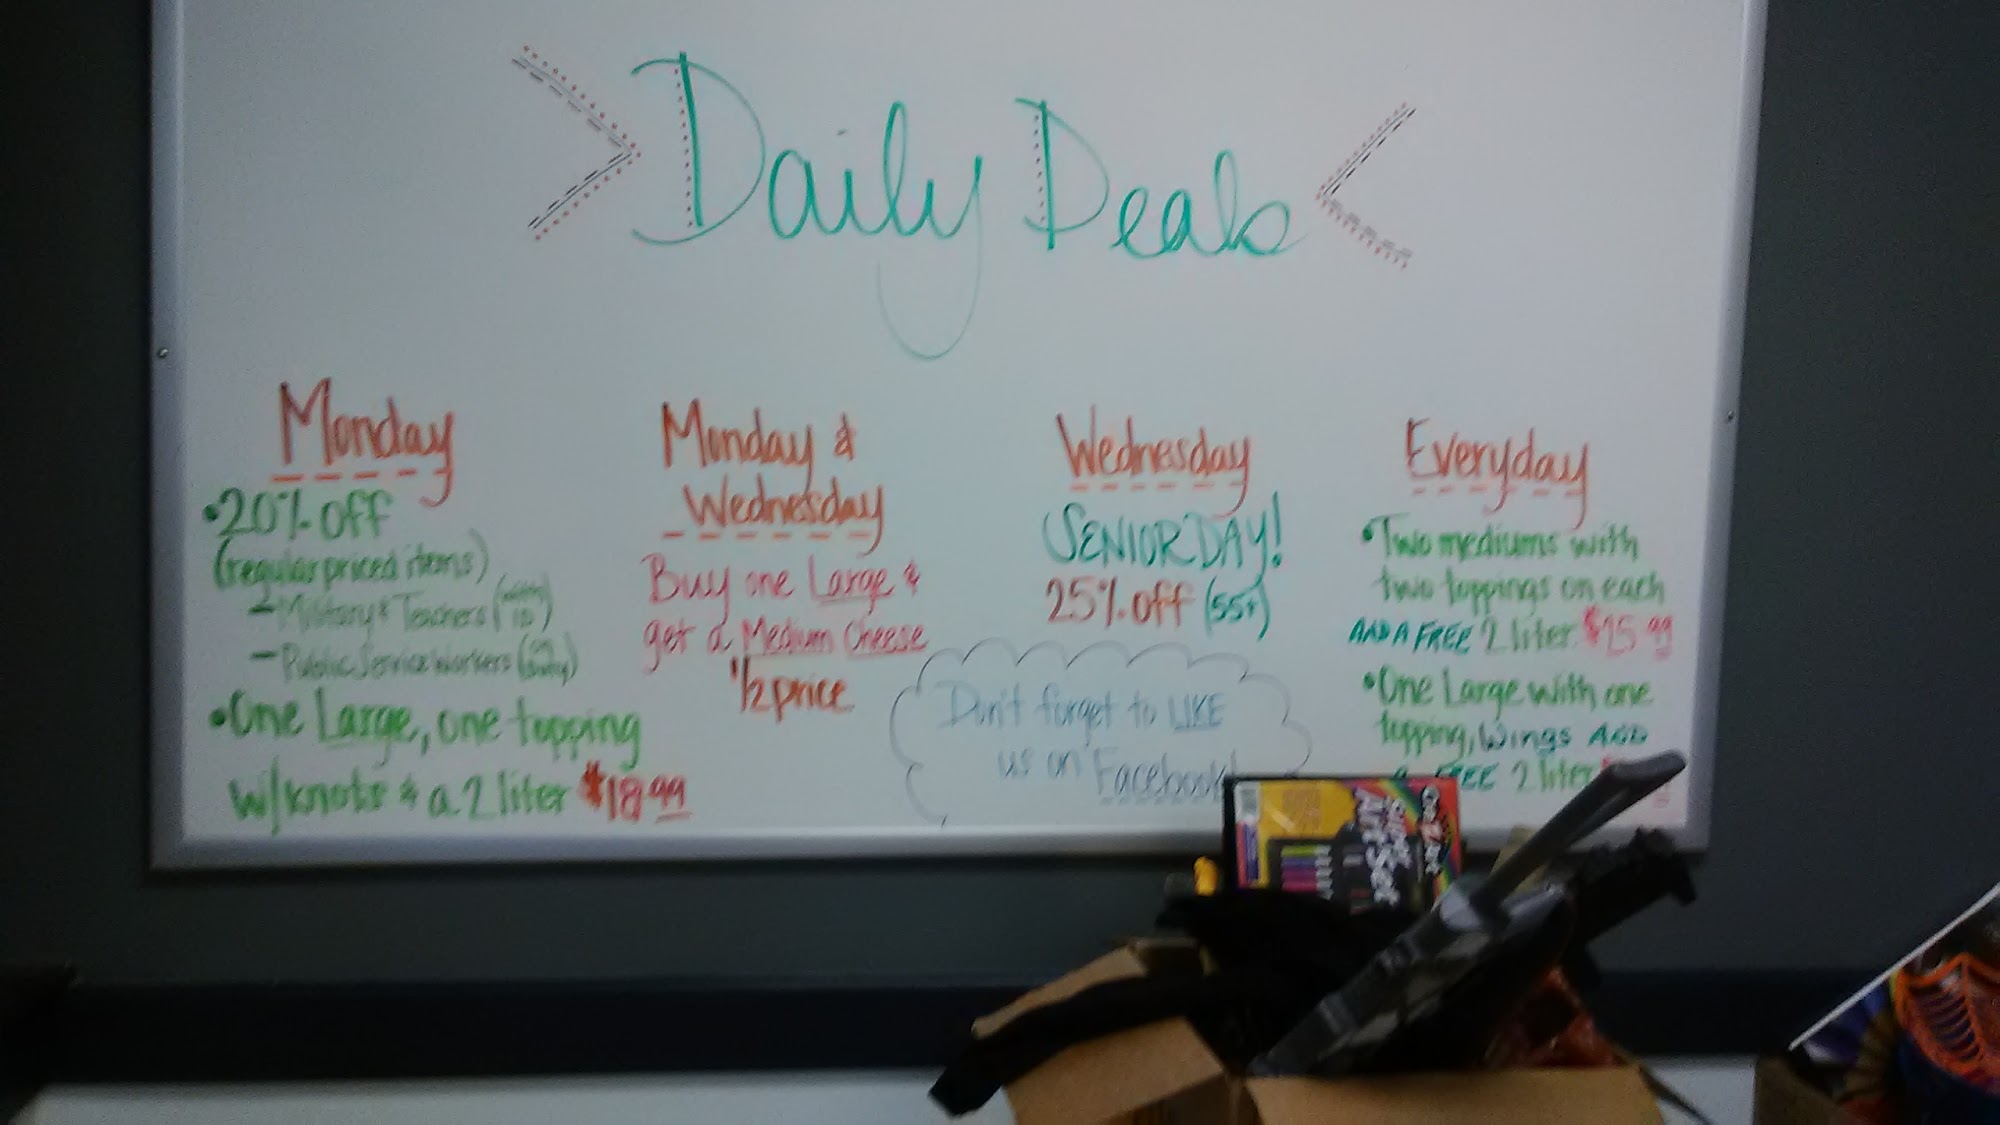 Daily Deals
Monday
• 20% off
(regular priced items)
- Military & Teachers (with ID)
- Public Service Workers (on Duty)
• One Large, one topping
w/knots & a 2 liter $18.99
Monday &
Wednesday
Buy one Large &
get a Medium Cheese
1/2 price
Wednesday
SENIOR DAY!
25% off (55+)
Don't forget to LIKE
us on Facebook!
Everyday
• Two mediums with
two toppings on each
AND A FREE 2 liter. $25.99
• One Large with one
topping, Wings AND
a FREE 2 liter
Cra-Z-Art
Super
Art Set